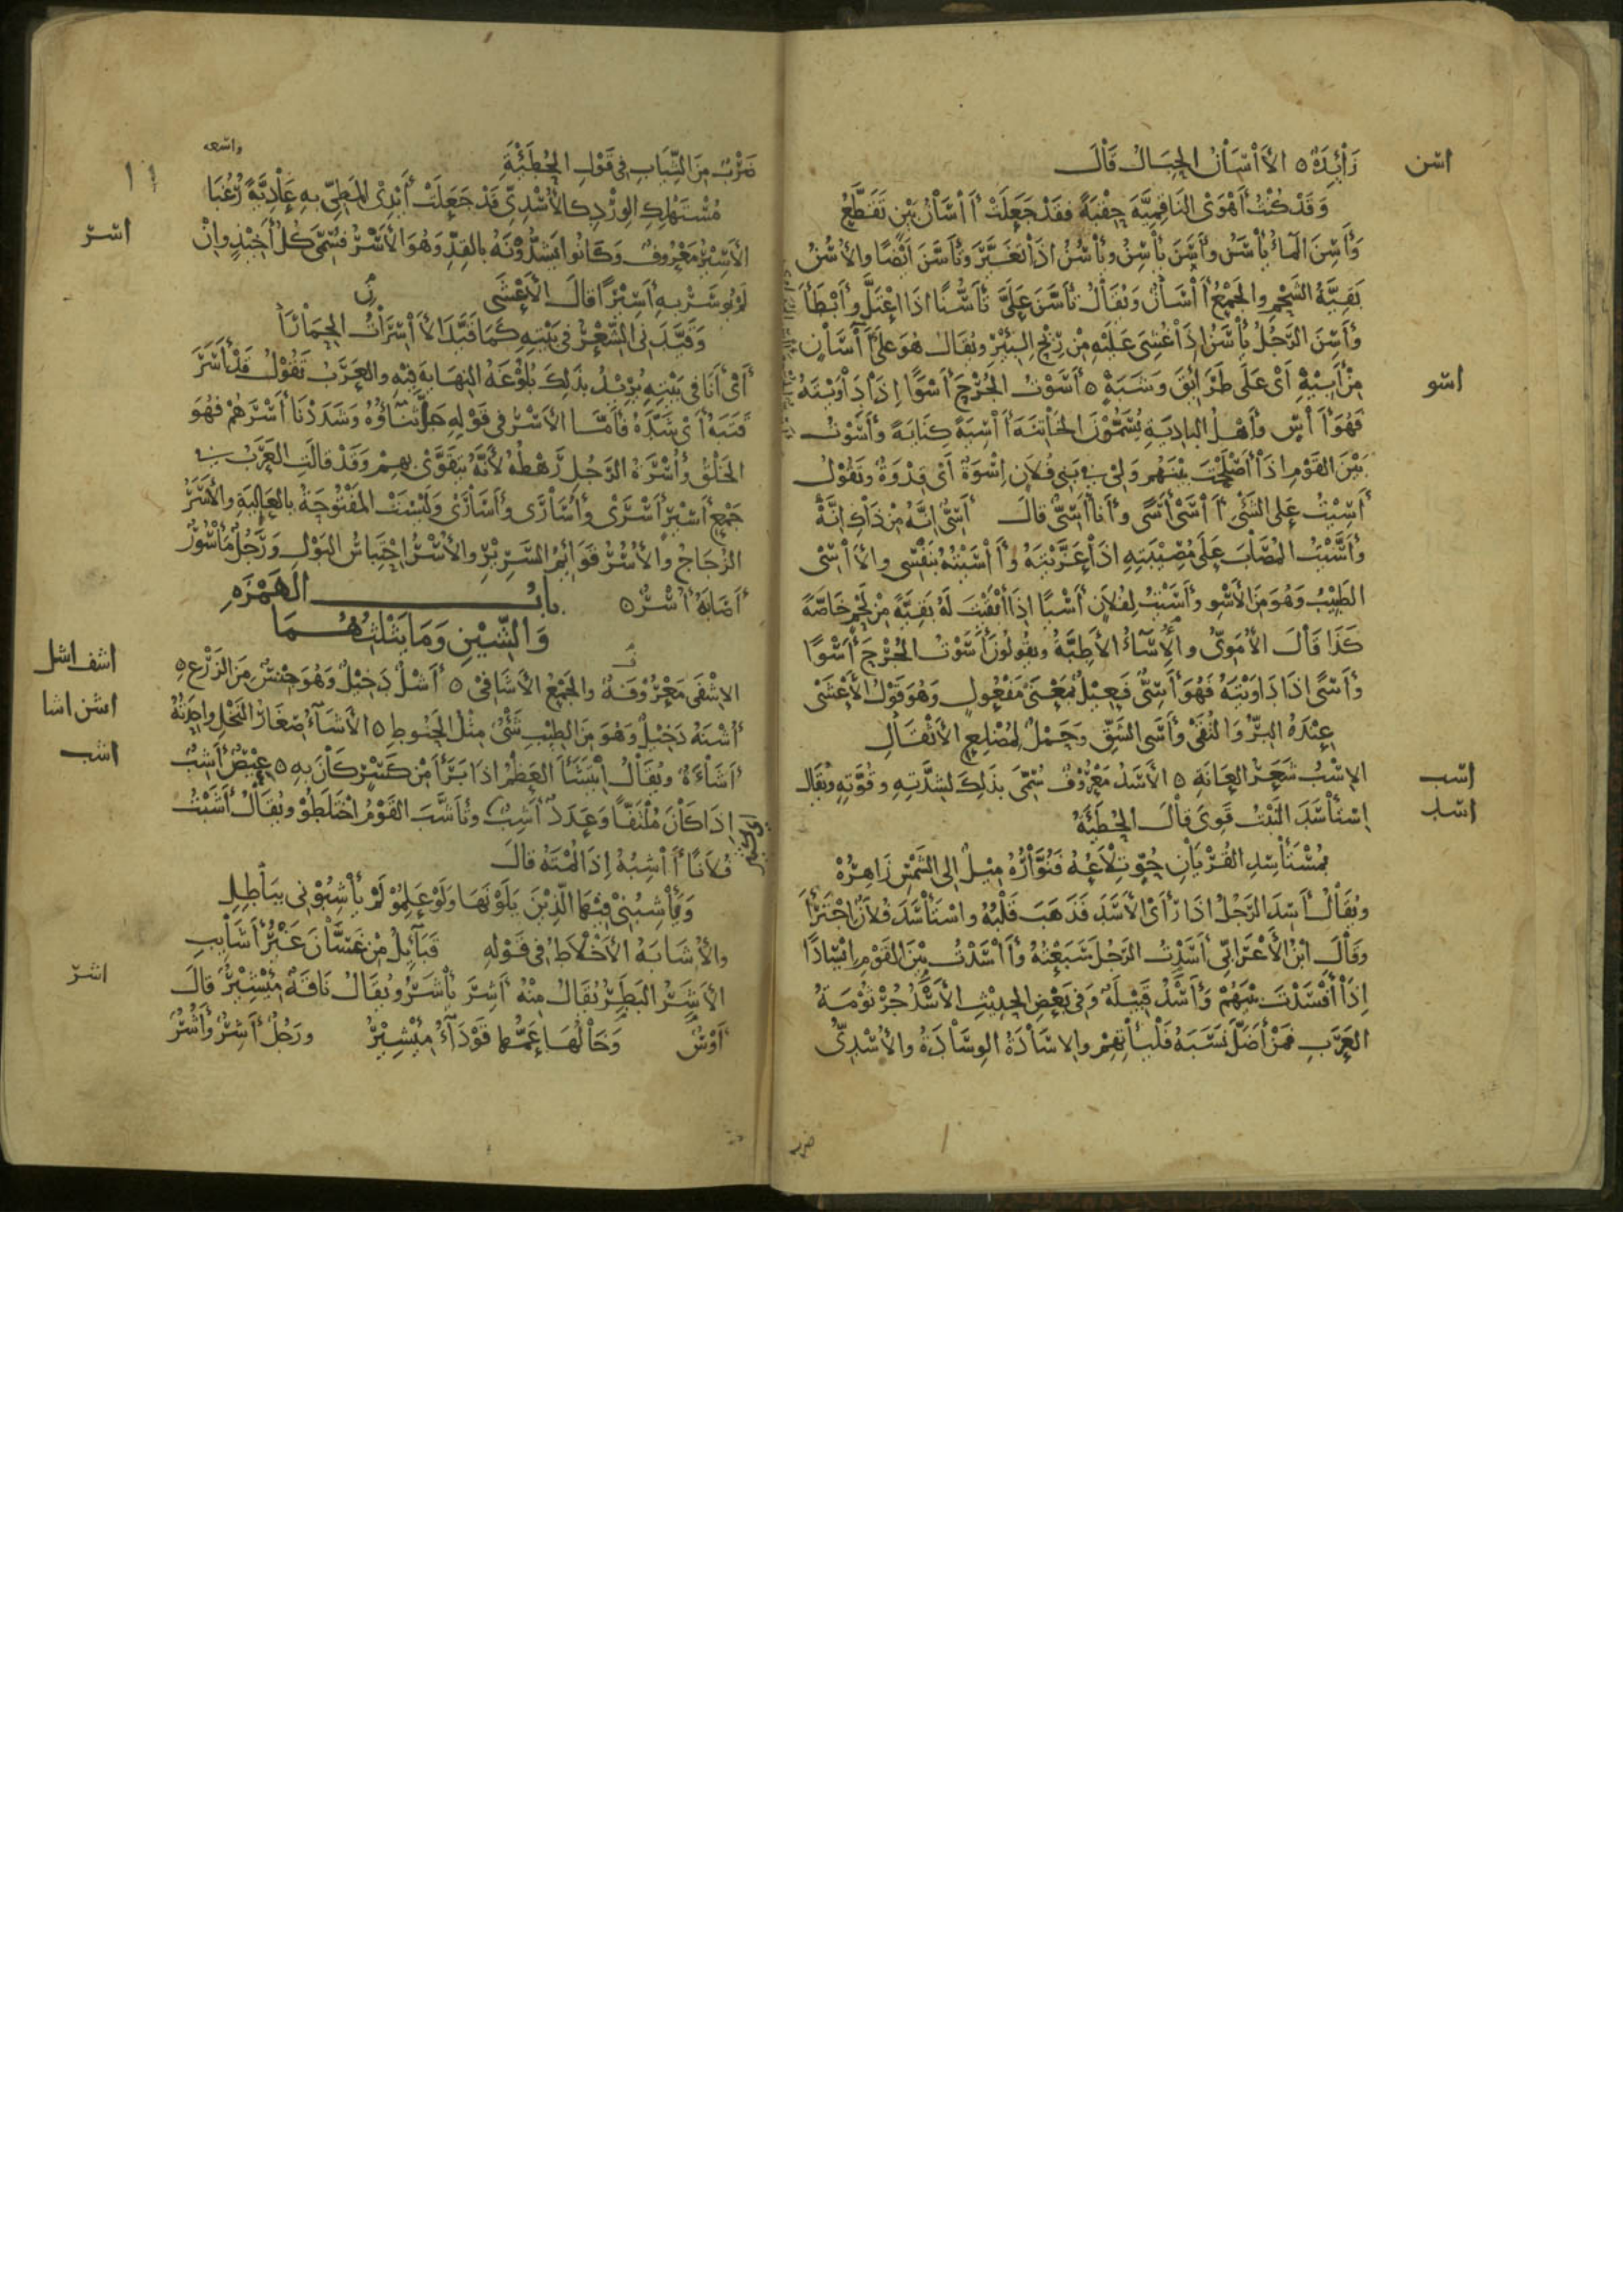 اسن
زَائِدَةٌ ه الْآسَانُ الْحِبَالُ قَالَ
وَقَدْ كُنْتُ أَهْوَى النَّاقِمِيَّةَ حِقْبَةً فَقَدْ جَعَلَتْ آسَانُ بَيْنٍ تَقَطَّعُ
وَأَسِنَ الْمَاءُ يَأْسَنُ وَأَسَنَ يَأْسِنُ وَيَأْسُنُ إِذَا تَغَيَّرَ وَتَأَسَّنَ أَيْضًا وَالْأُسُنُ
بَقِيَّةُ الشَّحْمِ وَالْجَمْعُ آسَانٌ وَيُقَالُ تَأَسَّنَ عَلَيَّ تَأَسُّنًا إِذَا اعْتَلَّ وَأَبْطَأَ
وَأَسِنَ الرَّجُلُ يَأْسَنُ إِذَا غُشِيَ عَلَيْهِ مِنْ رِيحِ الْبِئْرِ وَيُقَالُ هُوَ عَلَى آسَانٍ
اسو
مِنْ أَبِيهِ أَيْ عَلَى طَرَائِقَ وَشَبَهٍ ه أَسَوْتُ الْجُرْحَ أَسْوًا إِذَا دَاوَيْتَهُ
فَهُوَ آسٍ وَأَهْلُ الْبَادِيَةِ يُسَمُّونَ الْخَاتِنَةَ آسِيَةً كِنَايَةً وَأَسَوْتُ
بَيْنَ الْقَوْمِ إِذَا أَصْلَحْتَ بَيْنَهُمْ وَلِي فِي بَنِي فُلَانٍ إِسْوَةٌ أَيْ قِدْوَةٌ وَتَقُولُ
أَسِيتُ عَلَى الشَّيْءِ آسَى أَسًى وَأَنَا أَسِيٌّ قَالَ أَسِيٌّ إِنَّهُ مِنْ ذَاكِ إِنَّهْ
وَأَسَّيْتُ الْمُصَابَ عَلَى مُصِيبَتِهِ إِذَا عَزَّيْتَهُ وَآسَيْتُهُ بِنَفْسِي وَالْآسِي
الطَّبِيبُ وَهُوَ مِنَ الْأَسْوِ وَأَسَيْتُ لِفُلَانٍ أَسْيًا إِذَا أَبْقَيْتَ لَهُ بَقِيَّةً مِنْ لَحْمٍ خَاصَّةً
كَذَا قَالَ الْأُمَوِيُّ وَالْإِسَاءُ الْأَطِبَّةُ وَيَقُولُونَ أَسَوْتُ الْجُرْحَ أَسْوًا
وَأَسًى إِذَا دَاوَيْتَهُ فَهُوَ أَسِيٌّ فَعِيلٌ بِمَعْنَى مَفْعُولٍ وَهُوَ قَوْلُ الْأَعْشَى
عِنْدَهُ الْبِرُّ وَالتُّقَى وَأَسَى الشَّقِّ وَحَمْلٌ لِمُضْلِعِ الْأَثْقَالِ
اسب
الْإِسْبُ شَعَرُ الْعَانَةِ ه الْأَسَدُ مَعْرُوفٌ سُمِّيَ بِذَلِكَ لِشِدَّتِهِ وَقُوَّتِهِ وَيُقَالُ
اسد
اسْتَأْسَدَ النَّبْتُ قَوِيَ قَالَ الْحُطَيْئَةُ
بِمُسْتَأْسِدِ الْقُرْيَانِ حُوٍّ تِلَاعُهُ فَنُوَّارُهُ مِيلٌ إِلَى الشَّمْسِ زَاهِرُهْ
وَيُقَالُ أَسِدَ الرَّجُلُ إِذَا رَأَى الْأَسَدَ فَذَهَبَ قَلْبُهُ وَاسْتَأْسَدَ فُلَانٌ اجْتَرَأَ
وَقَالَ ابْنُ الْأَعْرَابِيِّ أَسَدْتُ الرَّجُلَ سَبَعْتُهُ وَآسَدْتُ بَيْنَ الْقَوْمِ إِيسَادًا
إِذَا أَفْسَدْتَ بَيْنَهُمْ وَأَسْدٌ قَبِيلَةٌ وَفِي بَعْضِ الْحَدِيثِ الْأَسْدُ جُرْثُومَةُ
الْعَرَبِ فَمَنْ أَضَلَّ نَسَبَهُ فَلْيَأْتِهِمْ وَالْإِسَادَةُ الْوِسَادَةُ وَالْأُسْدِيُّ
ضرب
١١
ضَرْبٌ مِنَ الثِّيَابِ فِي قَوْلِ الْحُطَيْئَةِ
واسعه
مُسْتَهْلِكِ الْوِرْدِ كَالْأُسْدِيِّ قَدْ جَعَلَتْ أَيْدِي الْمَطِيِّ بِهِ عَادِيَّةً رُغُبَا
اسر
الْأَسِيرُ مَعْرُوفٌ وَكَانُوا يَشُدُّونَهُ بِالْقِدِّ وَهُوَ الْأَسْرُ فَسُمِّيَ كُلُّ أَخِيذٍ وَإِنْ
لَمْ يُوسَرْ بِهِ أَسِيرًا قَالَ الْأَعْشَى
وَقَيَّدَنِي الشِّعْرُ فِي بَيْتِهِ كَمَا قَيَّدَ الْآسِرَاتُ الْحِمَارَا
أَيْ أَنَا فِي بَيْتِهِ يُرِيدُ بِذَلِكَ بُلُوغَهُ النِّهَايَةَ فِيهِ وَالْعَرَبُ تَقُولُ قَدْ أَسَرَ
قَتَبَهُ أَيْ شَدَّهُ فَأَمَّا الْأَسْرُ فِي قَوْلِهِ جَلَّ ثَنَاؤُهُ وَشَدَدْنَا أَسْرَهُمْ فَهُوَ
الْخَلْقُ وَأُسْرَةُ الرَّجُلِ رَهْطُهُ لِأَنَّهُ يَتَقَوَّى بِهِمْ وَقَدْ قَالَتِ الْعَرَبُ فِي
جَمْعِ أَسِيرٍ أَسْرَى وَأُسَارَى وَأَسَارَى وَلَيْسَتِ الْمَفْتُوحَةُ بِالْعَالِيَةِ وَالْأَسْرُ
الزُّجَاجُ وَالْأُسُرُ قَوَائِمُ السَّرِيرِ وَالْأُسْرُ احْتِبَاسُ الْبَوْلِ وَرَجُلٌ مَأْسُورٌ
أَصَابَهُ أُسْرٌ ه بَابُ الْهَمْزَةِ
وَالشِّينِ وَمَا يَثْلُثُهُمَا
اشف اشل
الْإِشْفَى مَعْرُوفَةٌ وَالْجَمْعُ الْأَشَافِي ه أَشْلٌ دَخِيلٌ وَهُوَ جِنْسٌ مِنَ الزَّرْعِ ه
اشن اشا
أُشْنَهُ دَخِيلٌ وَهُوَ مِنَ الطِّيبِ شَيْءٌ مِثْلُ الْحَنُوطِ ه الْأَشَاءُ صِغَارُ النَّخْلِ وَاحِدَتُهُ
اشب
أَشَاءَةٌ وَيُقَالُ ائْتَشَأَ الْعَظْمُ إِذَا بَرَأَ مِنْ كَسْرٍ كَانَ بِهِ ه عِيصٌ أَشِبٌ
إِذَا كَانَ مُلْتَفًّا وَعَدَدٌ أَشِبٌ وَتَأَشَّبَ الْقَوْمُ اخْتَلَطُوْ وَيُقَالُ أَشَبْتُ
فُلَانًا آشِبُهُ إِذَا لُمْتَهُ قَالَ
وَيَأْشِبُنِي فِيهَا الَّذِينَ يَلَوْنَهَا وَلَوْ عَلِمُوْ لَمْ يَأْشِبُوْنِي بِبَاطِلِ
وَالْأُشَابَةُ الْأَخْلَاطُ فِي قَوْلِهِ قَبَائِلُ مِنْ غَسَّانَ غَيْرُ أَشَايِبِ
اشر
الْأَشَرُ الْبَطَرُ يُقَالُ مِنْهُ أَشِرَ يَأْشَرُ وَيُقَالُ نَاقَةٌ مِئْشِيرٌ قَالَ
أَوْسٌ وَخَالُهَا عَمُّهَا قَوْدَاءُ مِئْشِيرُ وَرَجُلٌ أَشِرٌ وَأَشُرٌ